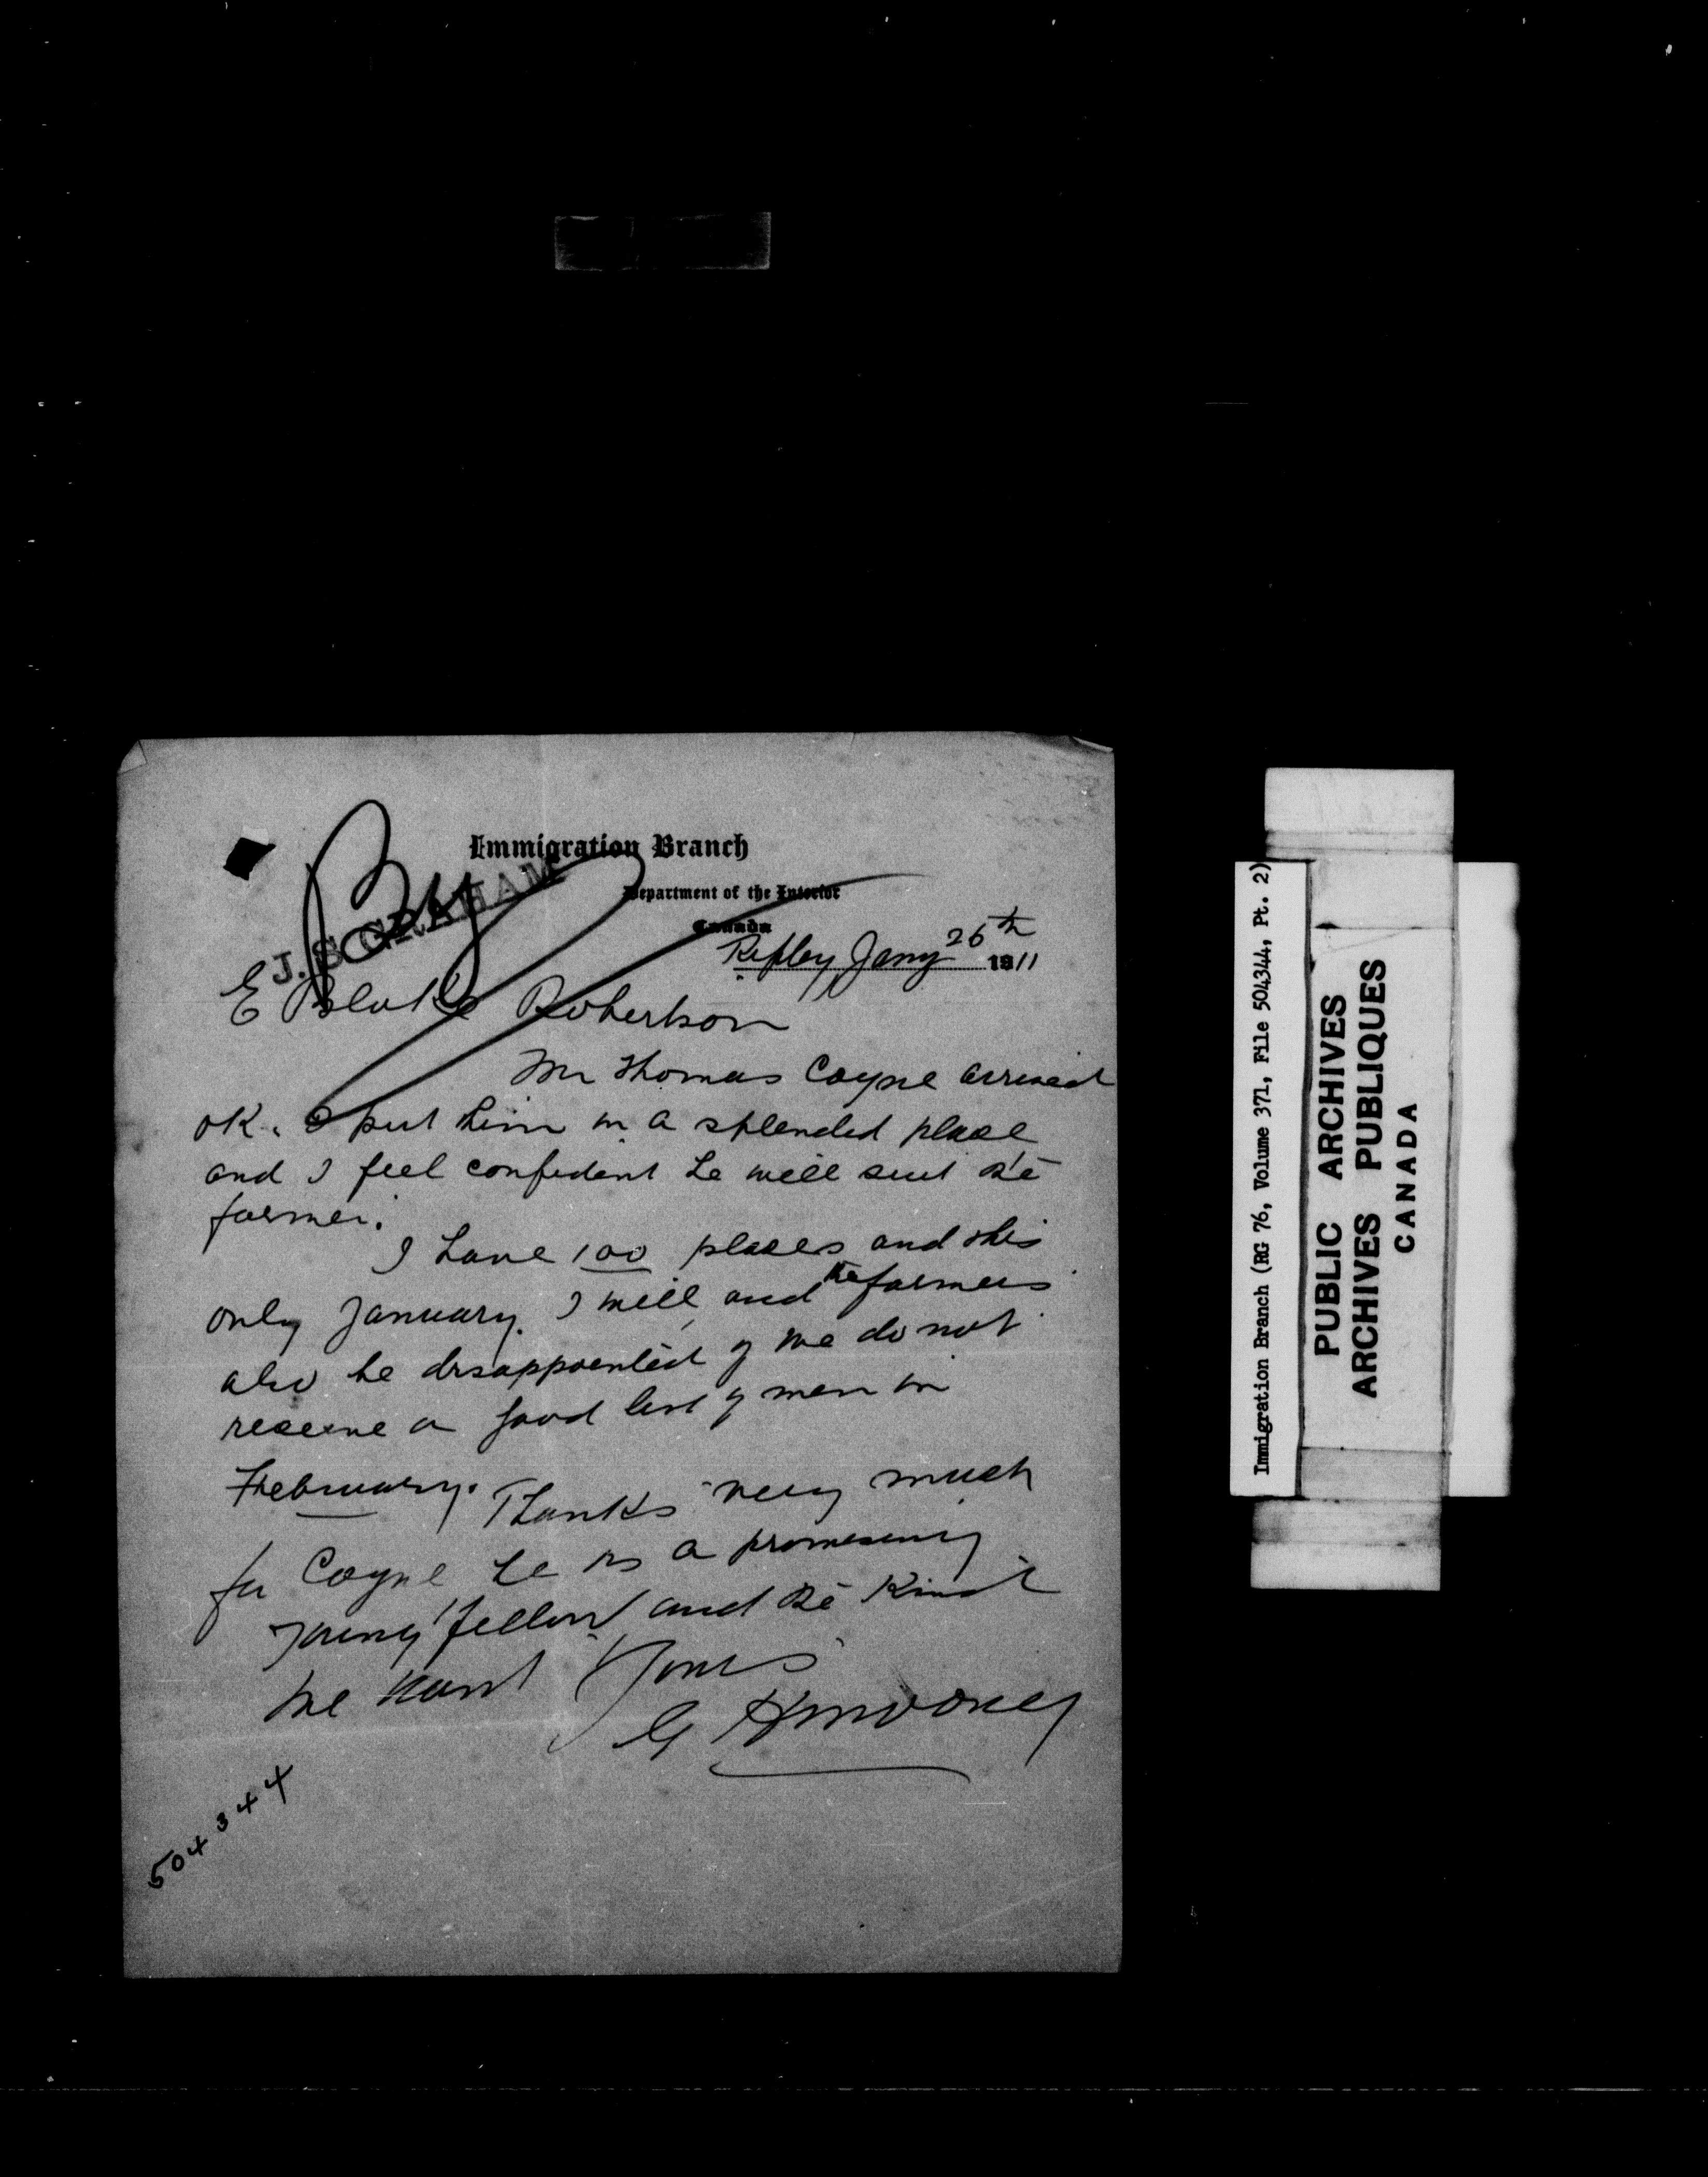 Immigration Branch
Department of the Interior
Canada
J. S. GRAHAM
Ripley Jany 26th 1911
E Blake Robertson
Mr Thomas Coyne arrived
OK. I put him in a splended place
and I feel confident he will suit the
farmer.
I have 100 places and this
only January. I will and the farmers
also be disappointed if we do not
receive a good lot of men in
February. Thanks very much
for Coyne he is a promising
young fellow and the Kind
we want Yours
G H Mooney
504344
Immigration Branch (RG 76, Volume 371, File 504344, Pt. 2)
PUBLIC ARCHIVES
ARCHIVES PUBLIQUES
CANADA